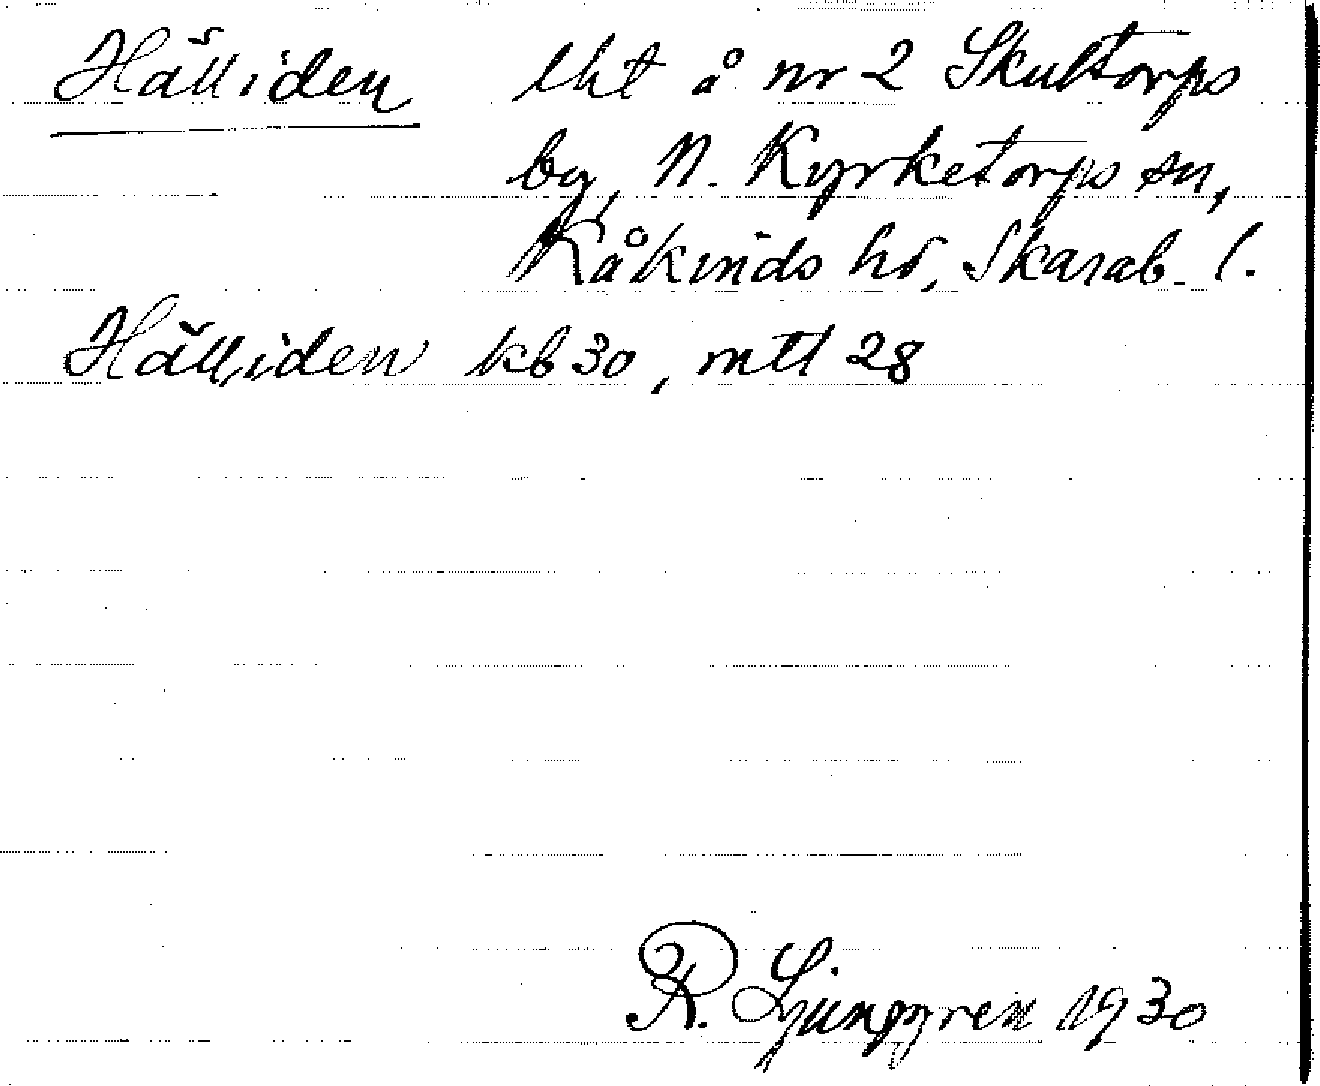 Hälliden lht å nr 2 Skultorps
by, N. Kyrketorps sn,
Kåkinds hd, Skarab. l.
Hälliden kb 30, mtl 28
R. Ljunggren 1930